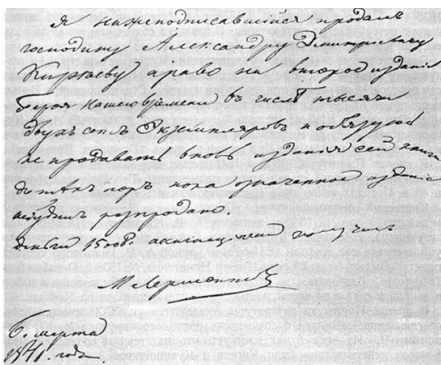 Я нижеподписавшийся продалъ
господину Александру Дмитріевичу
Кирѣеву право на второе изданіе
Героя нашего времени въ числѣ тысячи
двухъ сотъ экземпляровъ и обязуюсь
не продавать вновь изданія сей книги
до тѣхъ поръ пока означенное изданіе
не будетъ розпродано.
Деньги 1500 р. ассигнаціями получилъ
М Лермонтовъ
6. марта
1841. года.